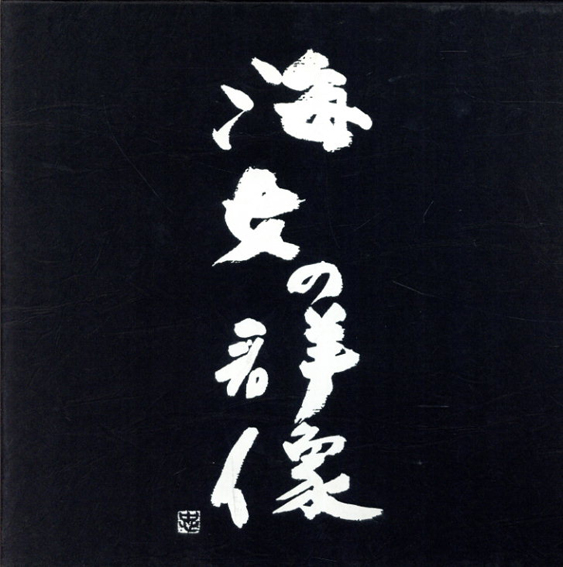 海女の群像